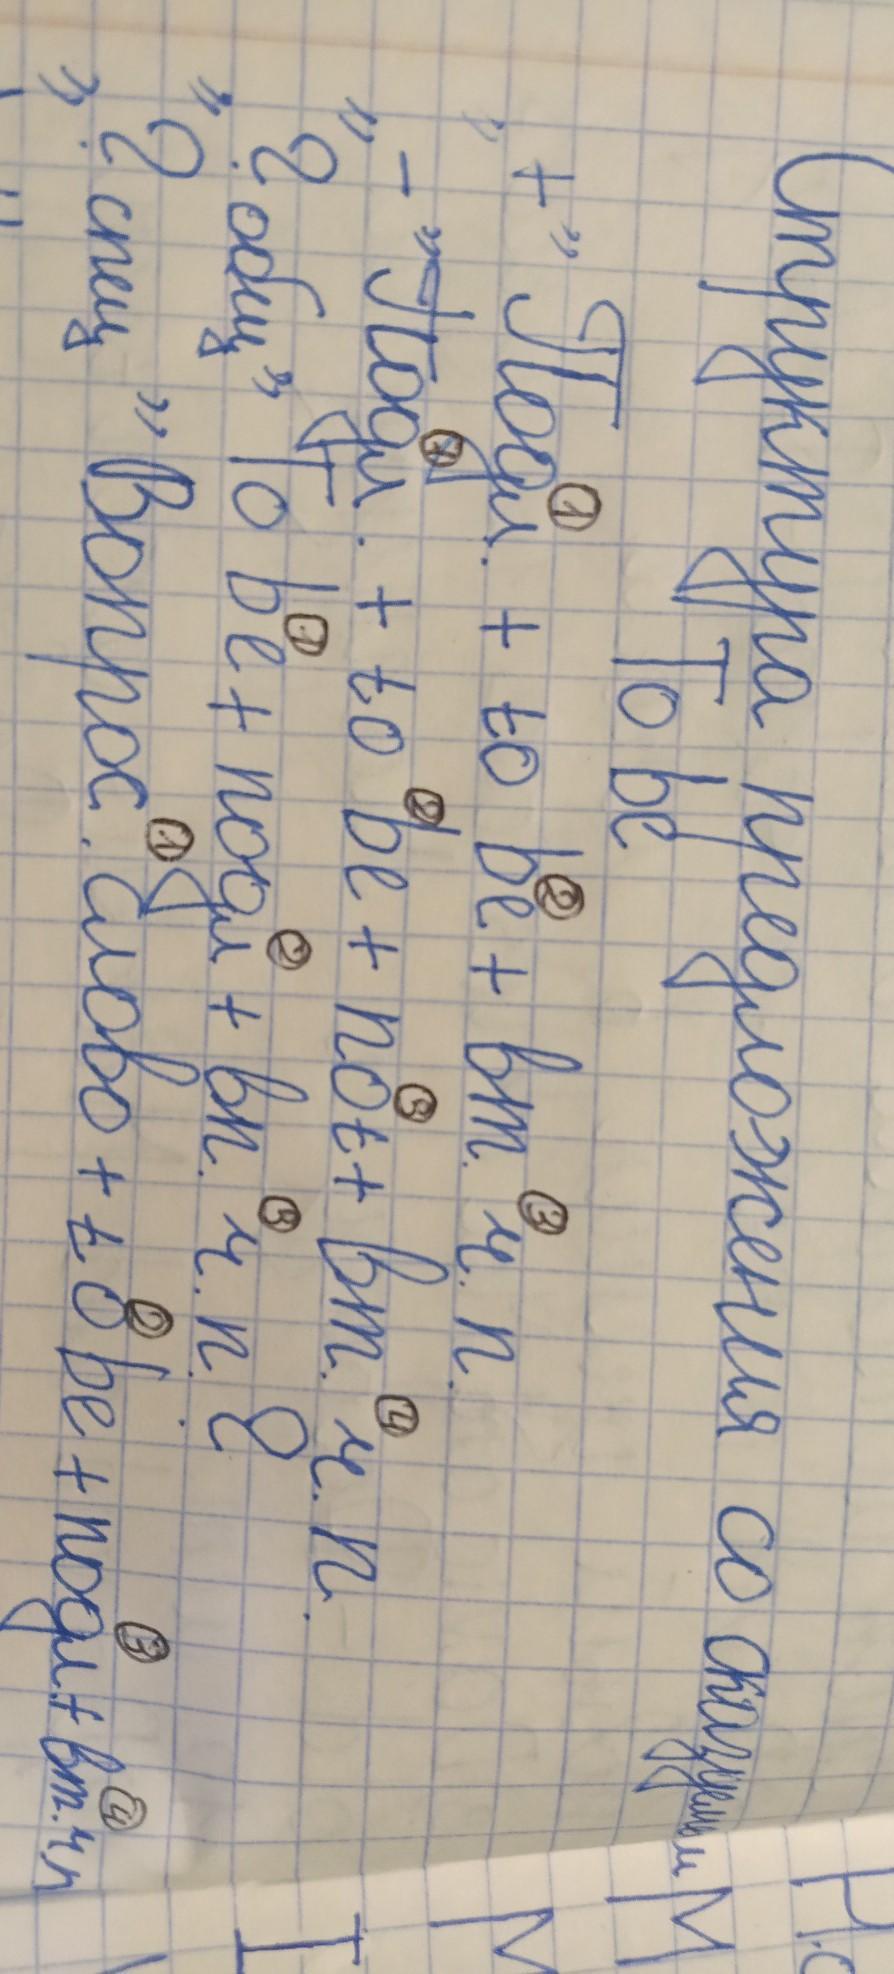 Структура предложения со сказуемым
To be
"+" Подл. ① + to be ② + вт. ч. п. ③
"-" Подл. ① + to be ② + not ③ + вт. ч. п. ④
"? общ" To be ① + подл ② + вт. ч. п. ③ ?
"? спец" Вопрос. слово ① + to be ② + подл ③ + вт. ч п ④